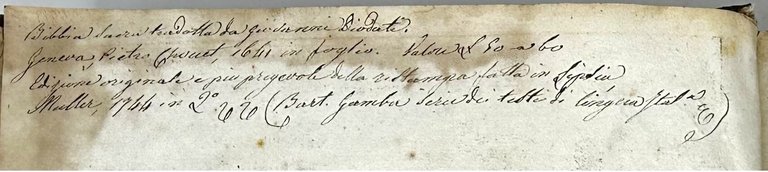 Bibbia Sacra tradotta da Giovanni Diodati.
Geneva, Pietro Chouet, 1641 in foglio. Valore £ 50 a 60
Edizione originale e più pregevole della ristampa fatta in Lipsia
Muller, 1744 in 2º (Bart. Gamba Serie dei testi di lingua Ital.ª